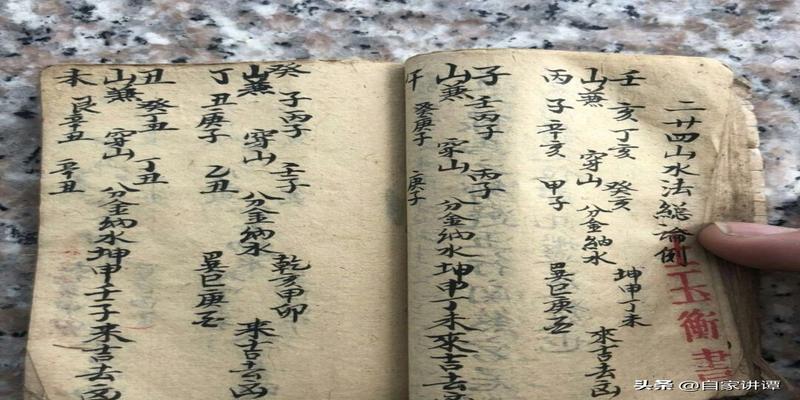 二廿四山水法総論例
玉衡書
壬亥丁亥癸亥坤申丁未
山兼穿山分金納水來吉去凶
丙子辛亥甲子巽巳庚酉
子壬丙子丙子
山兼穿山分金納水坤申丁未來吉去凶
午癸庚子庚子
癸子丙子壬子乾亥甲卯
山兼穿山分金納水來吉去凶
丁丑庚子乙丑巽巳庚酉
丑癸丁丑丁丑
山兼穿山分金納水坤申壬子來吉去凶
未艮辛丑辛丑
头条 @自家讲谭